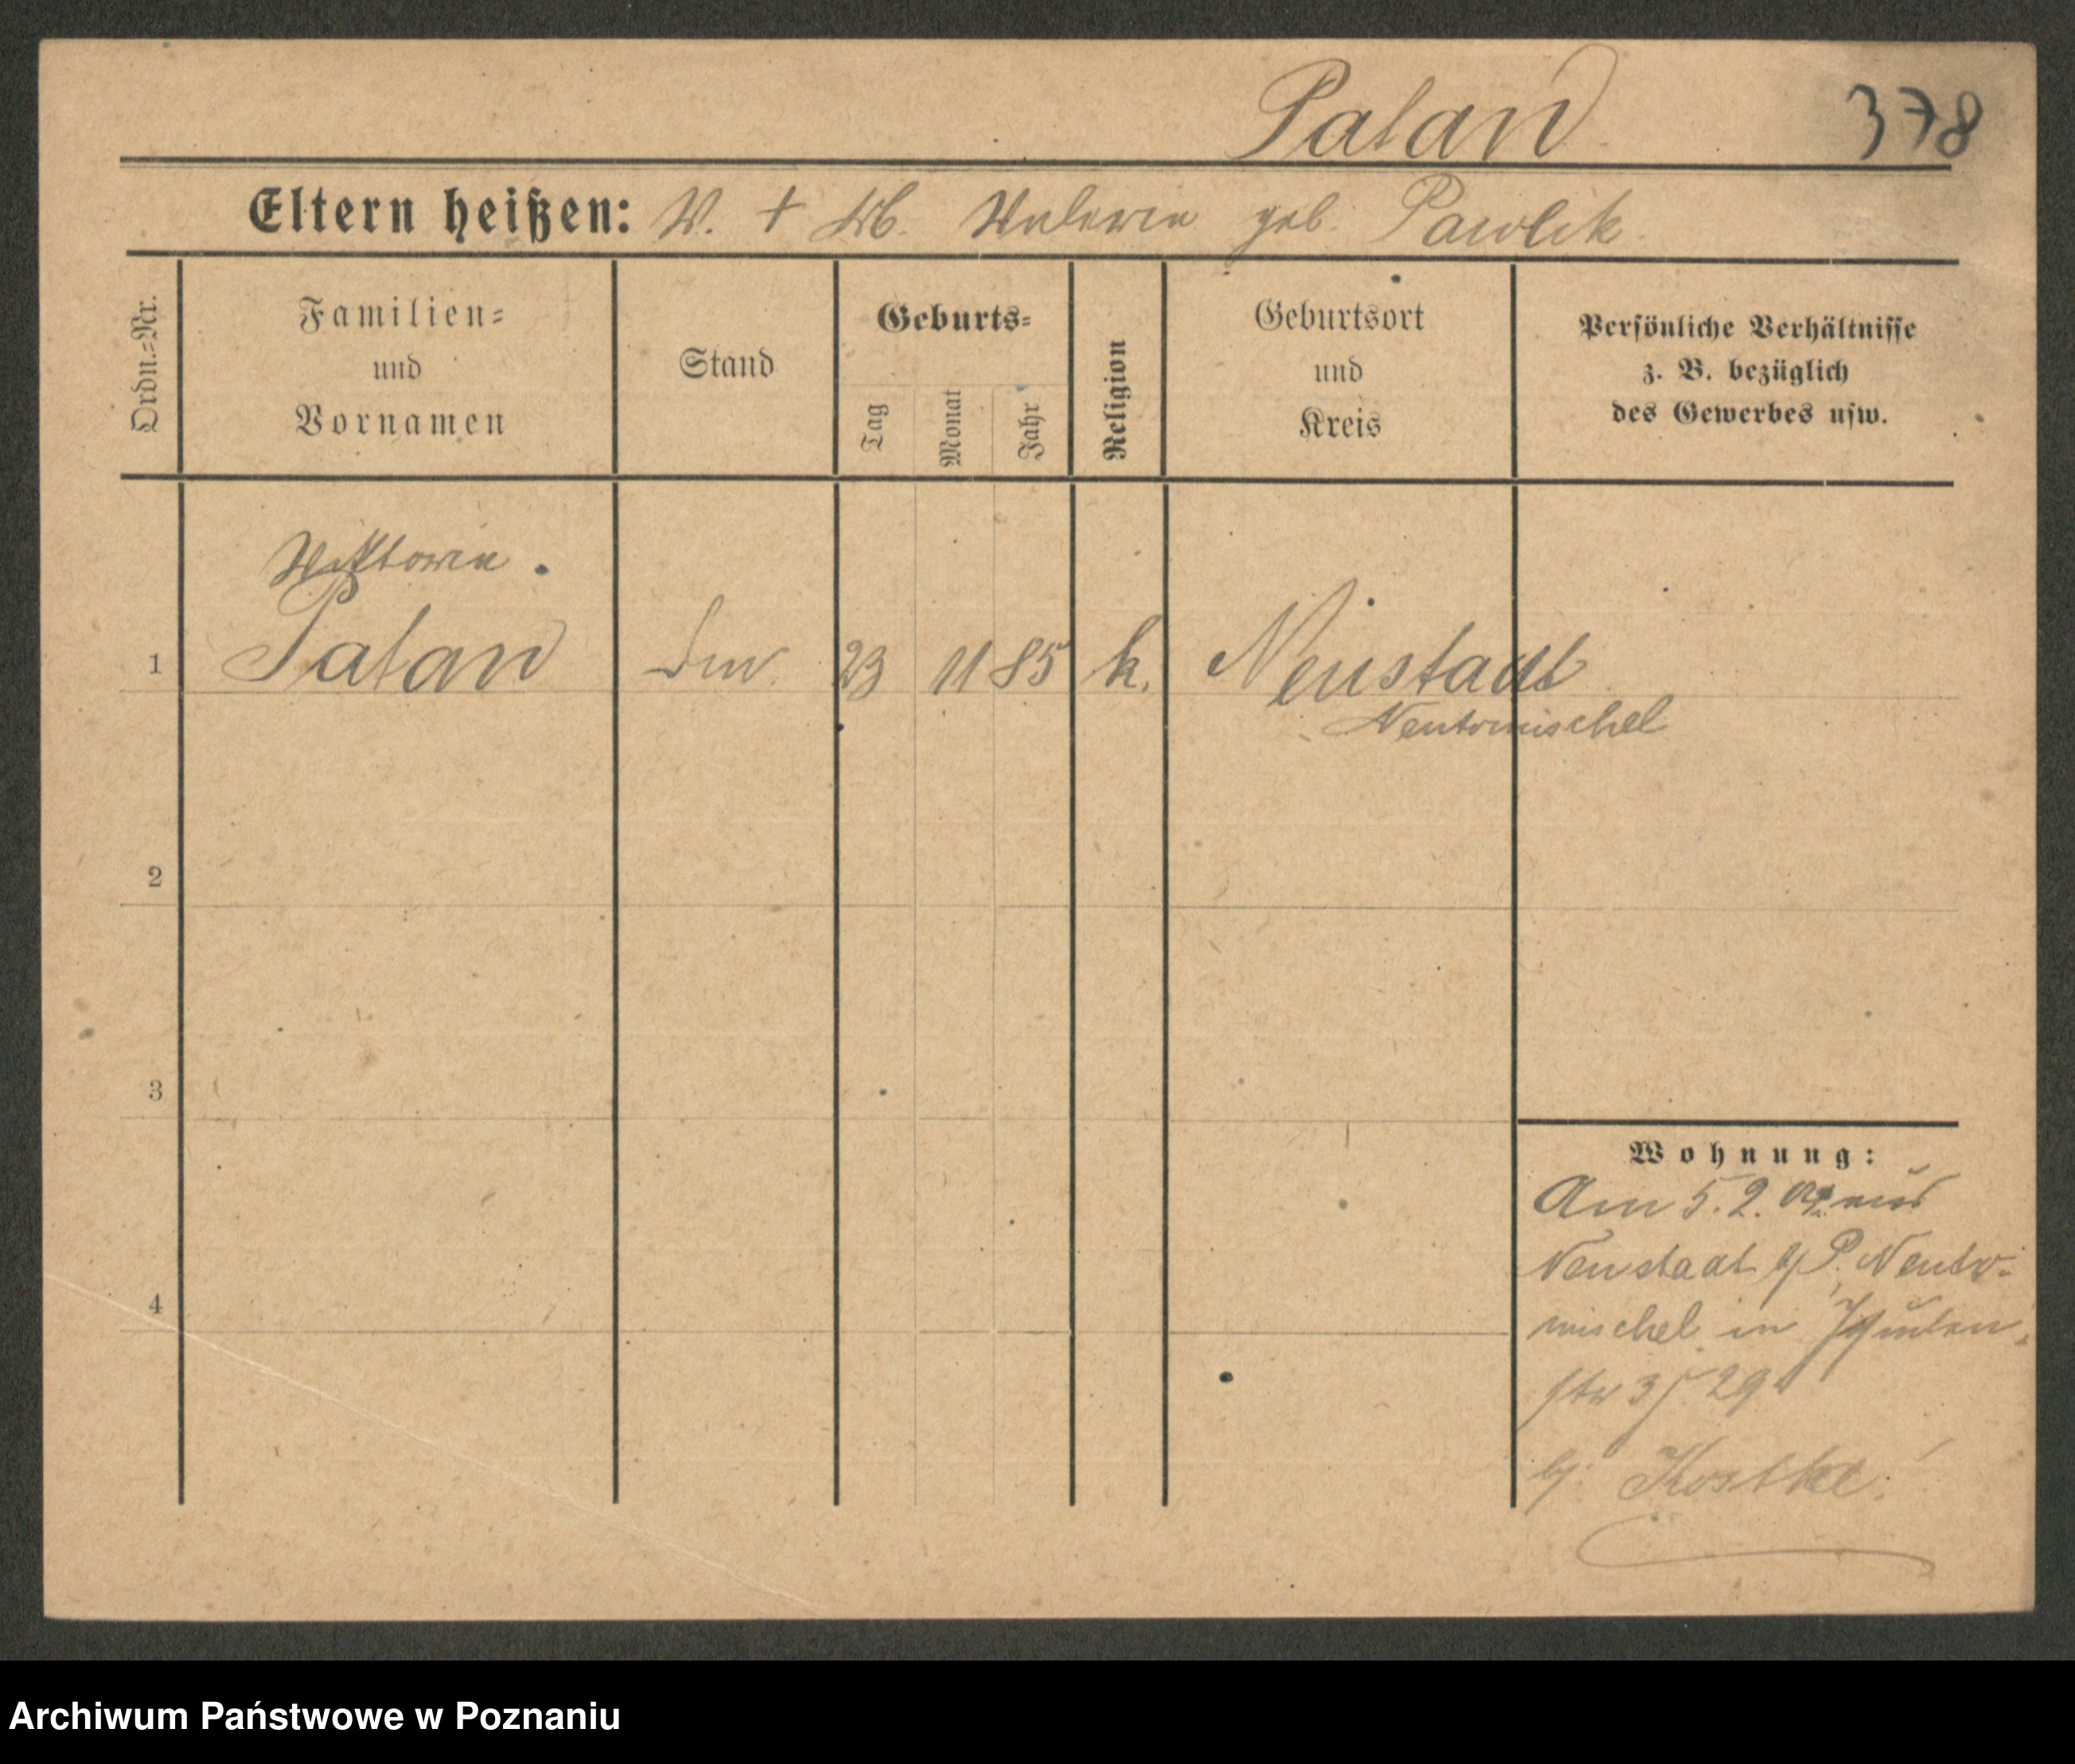 Palan
378
Eltern heißen: V. + M. Valeria geb. Pawlik
Ordn.=Nr.
Familien=
und
Vornamen
Stand
Geburts=
Tag
Monat
Jahr
Religion
Geburtsort
und
Kreis
Persönliche Verhältnisse
z. B. bezüglich
des Gewerbes usw.
Viktoria
1 Palan 23 11 85 k. Neustadt
Neutomischel
2
3
4
Wohnung:
Am 5. 2. 09 aus
Neustadt b/P. Neuto-
mischel in
str 3/29
bj. Kostke
Archiwum Państwowe w Poznaniu